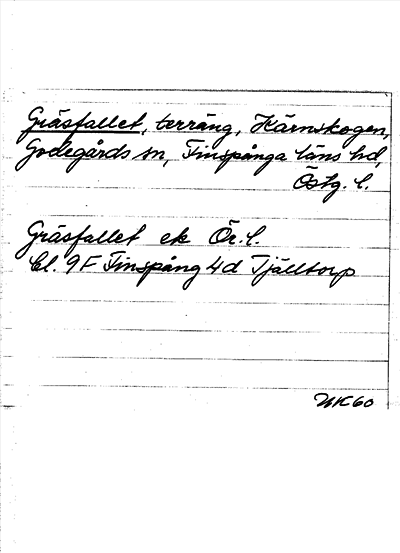 Gräsfallet, terräng, Kärnskogen,
Godegårds sn, Finspånga läns hd,
Östg. l.
Gräsfallet ek Ör. l.
Bl. 9F Finspång 4d Tjälltorp
NK60